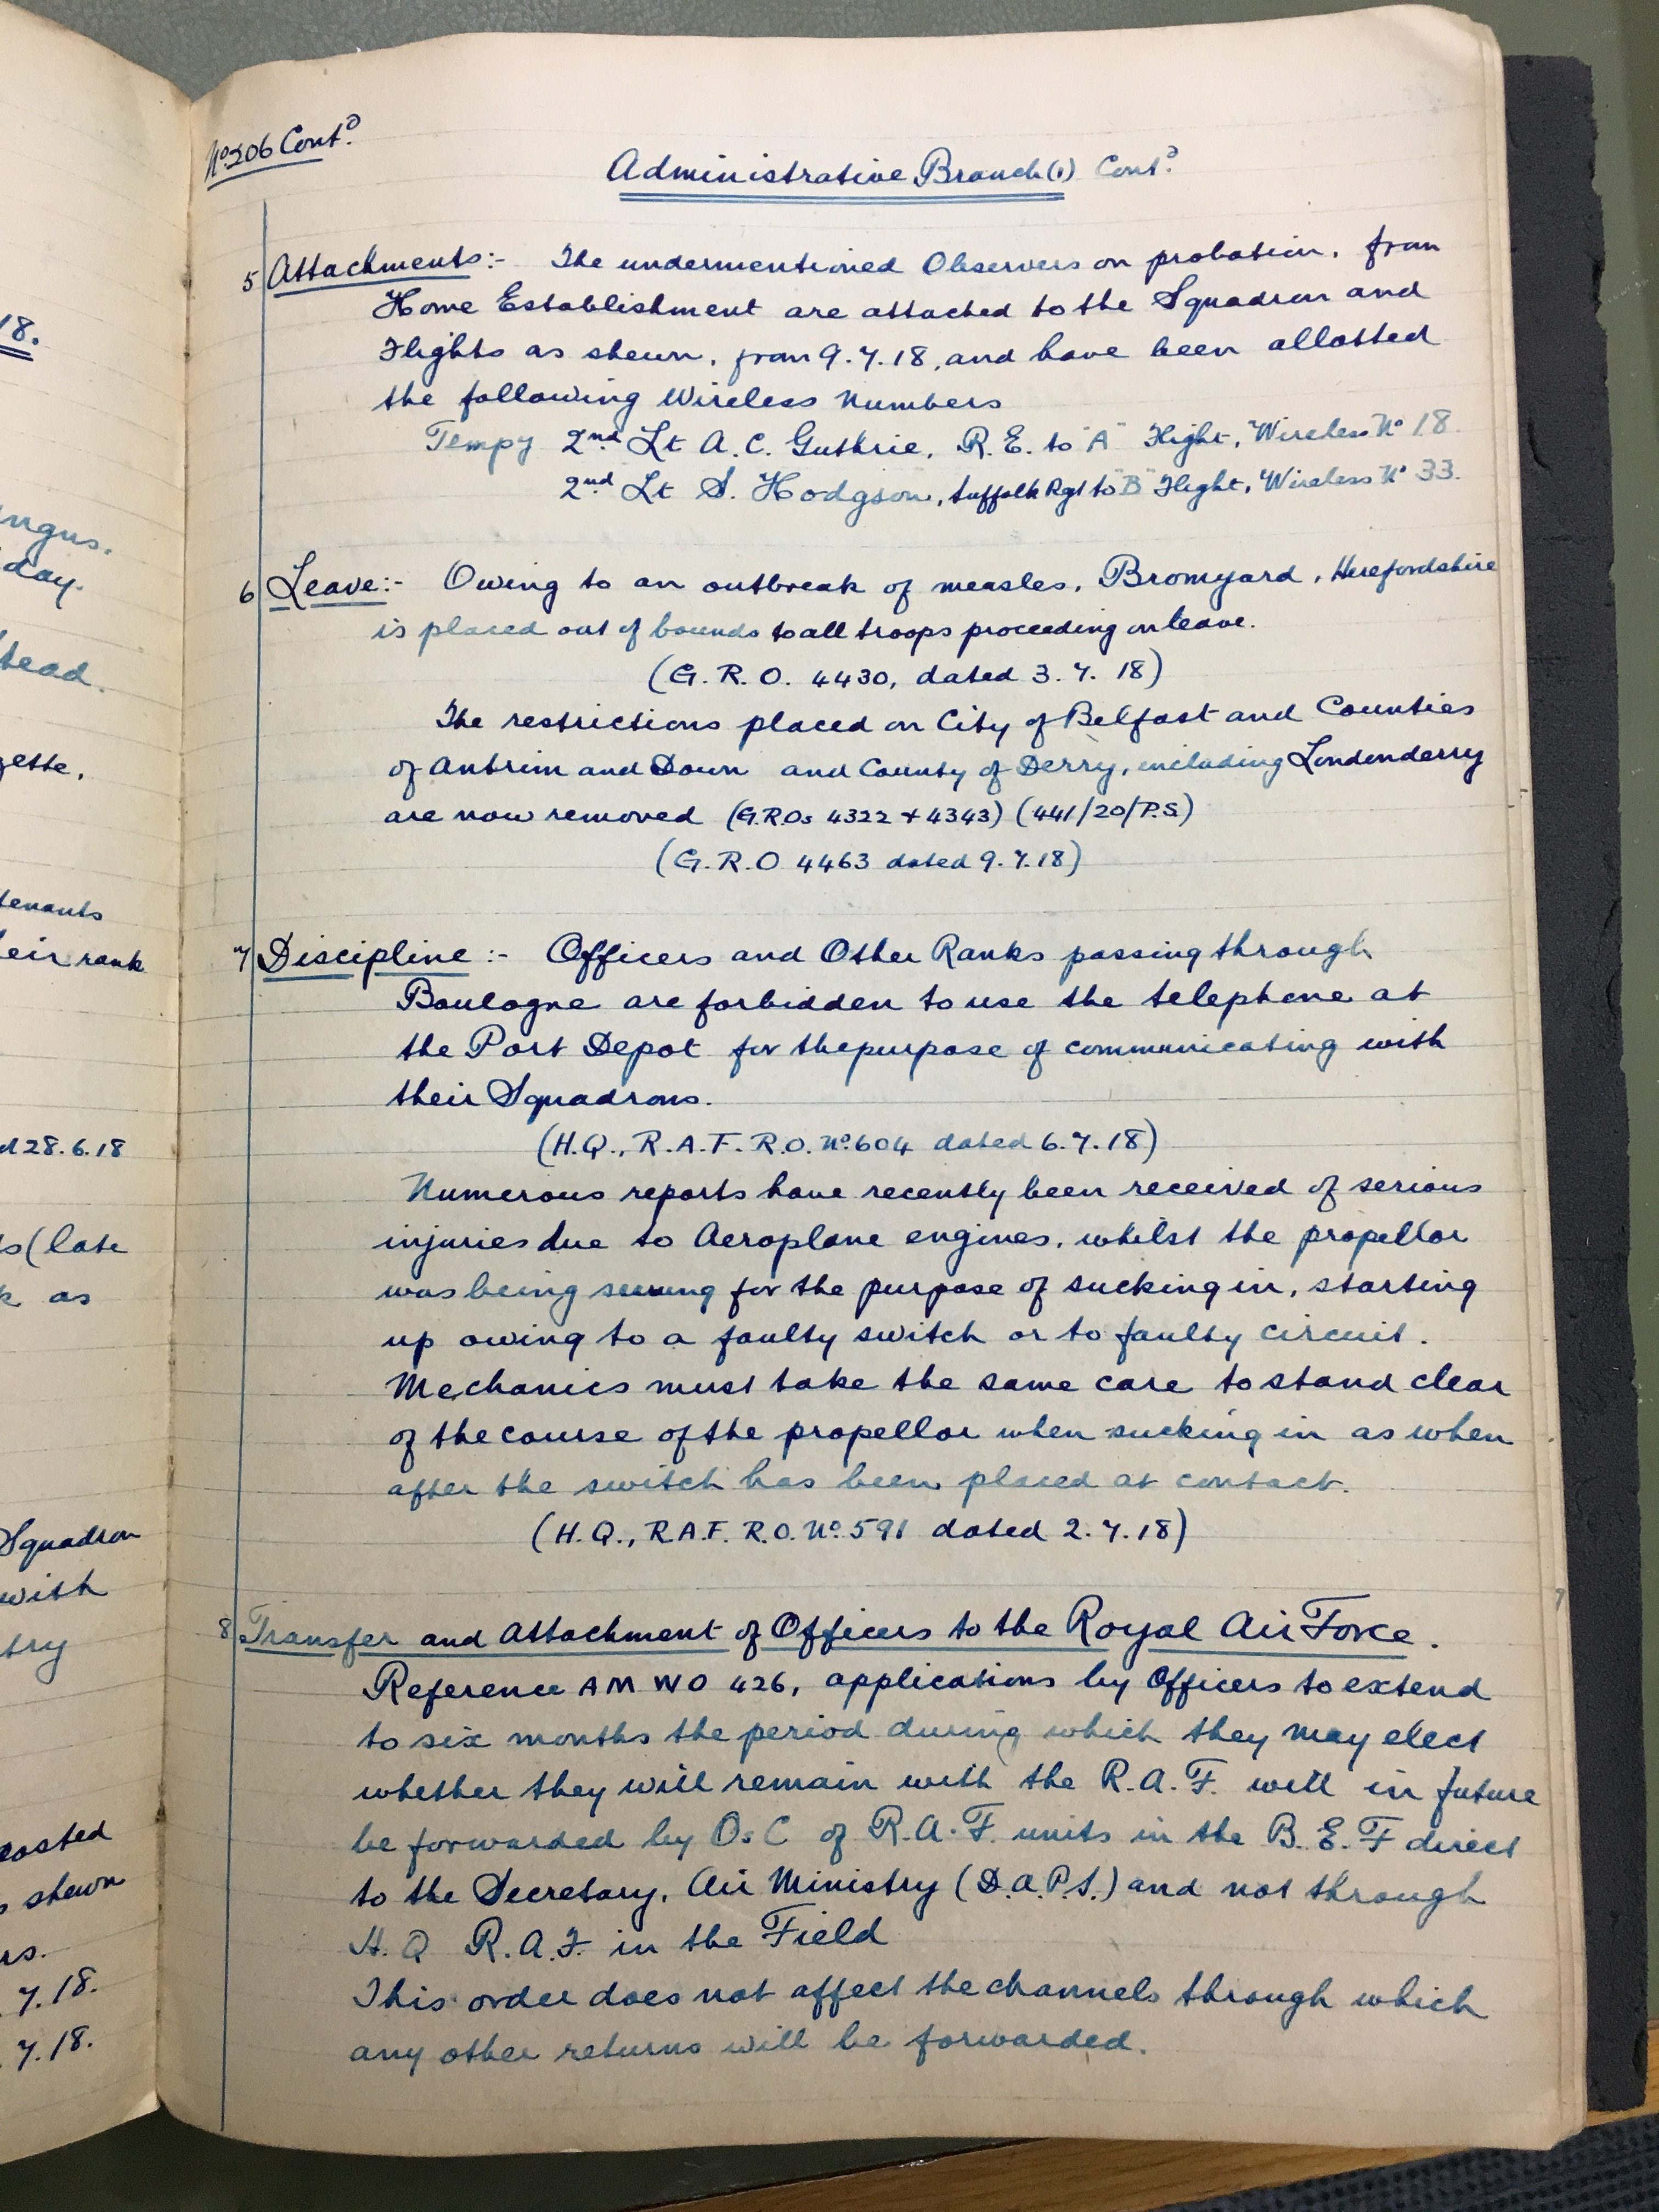 18.
ngus.
day.
tead.
zette,
tenants
eir rank
28.6.18
s (late
k as
Squadron
with
try
posted
shewn
rs.
7.18.
7.18.
No 206 Contd
Administrative Branch (1) Contd
5 Attachments:- The undermentioned Observers on probation, from
Home Establishment are attached to the Squadron and
Flights as shewn, from 9.7.18, and have been allotted
the following Wireless Numbers
Tempy 2nd Lt A.C. Guthrie, R.E. to "A" Flight, Wireless No 18.
2nd Lt S. Hodgson, Suffolk Rgt to "B" Flight, Wireless No 33.
6 Leave:- Owing to an outbreak of measles, Bromyard, Herefordshire
is placed out of bounds to all troops proceeding on leave.
(G.R.O. 4430, dated 3.7.18)
The restrictions placed on City of Belfast and Counties
of Antrim and Down and County of Derry, including Londonderry
are now removed (G.R.Os 4322 + 4343) (441/20/P.S)
(G.R.O 4463 dated 9.7.18)
7 Discipline:- Officers and Other Ranks passing through
Boulogne are forbidden to use the telephone at
the Port Depot for the purpose of communicating with
their Squadrons.
(H.Q., R.A.F. R.O. No. 604 dated 6.7.18)
Numerous reports have recently been received of serious
injuries due to Aeroplane engines, whilst the propellor
was being swung for the purpose of sucking in, starting
up owing to a faulty switch or to faulty circuit.
Mechanics must take the same care to stand clear
of the course of the propellor when sucking in as when
after the switch has been placed at contact.
(H.Q., R.A.F. R.O. No. 591 dated 2.7.18)
8 Transfer and Attachment of Officers to the Royal Air Force.
Reference A M W O 426, applications by Officers to extend
to six months the period during which they may elect
whether they will remain with the R.A.F. will in future
be forwarded by Os C of R.A.F. units in the B.E.F direct
to the Secretary, Air Ministry (D.A.P.S.) and not through
H.Q R.A.F. in the Field
This order does not affect the channels through which
any other returns will be forwarded.